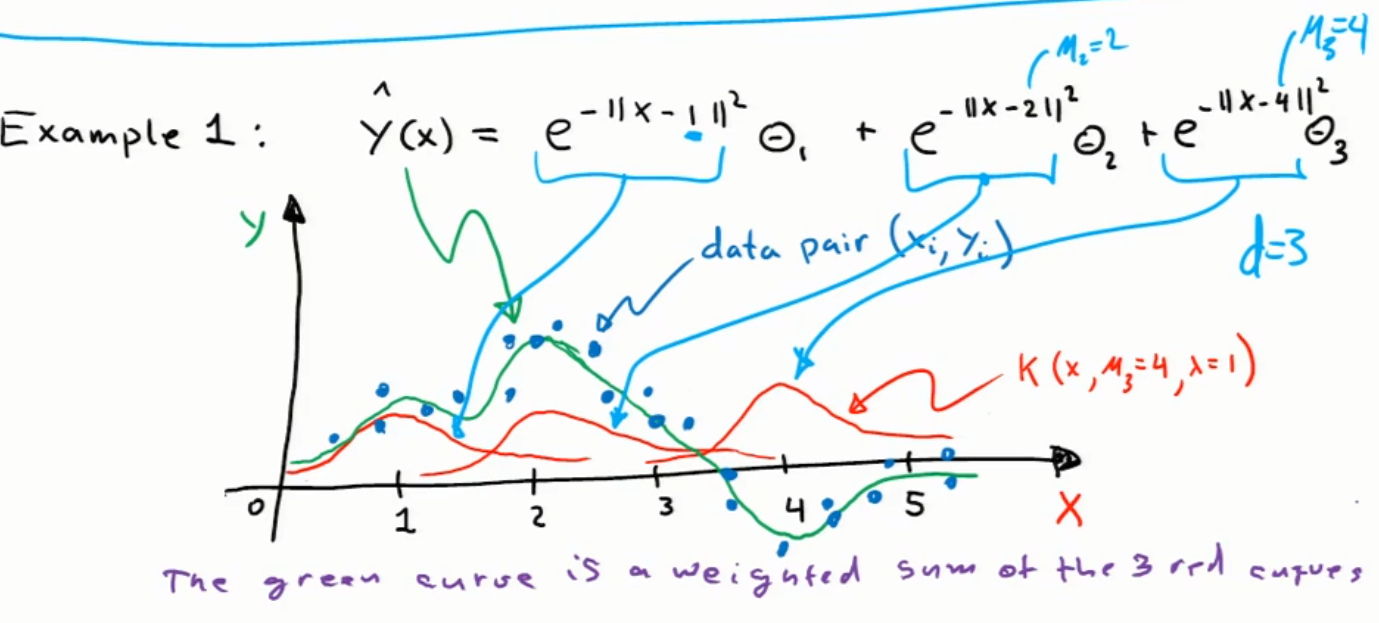 μ₂=2
μ₃=4
Example 1: Ŷ(x) = e^{-||x-1||²} Θ₁ + e^{-||x-2||²} Θ₂ + e^{-||x-4||²} Θ₃
y
data pair (xᵢ, yᵢ)
d=3
K(x, μ₃=4, λ=1)
0 1 2 3 4 5 X
The green curve is a weighted sum of the 3 red curves